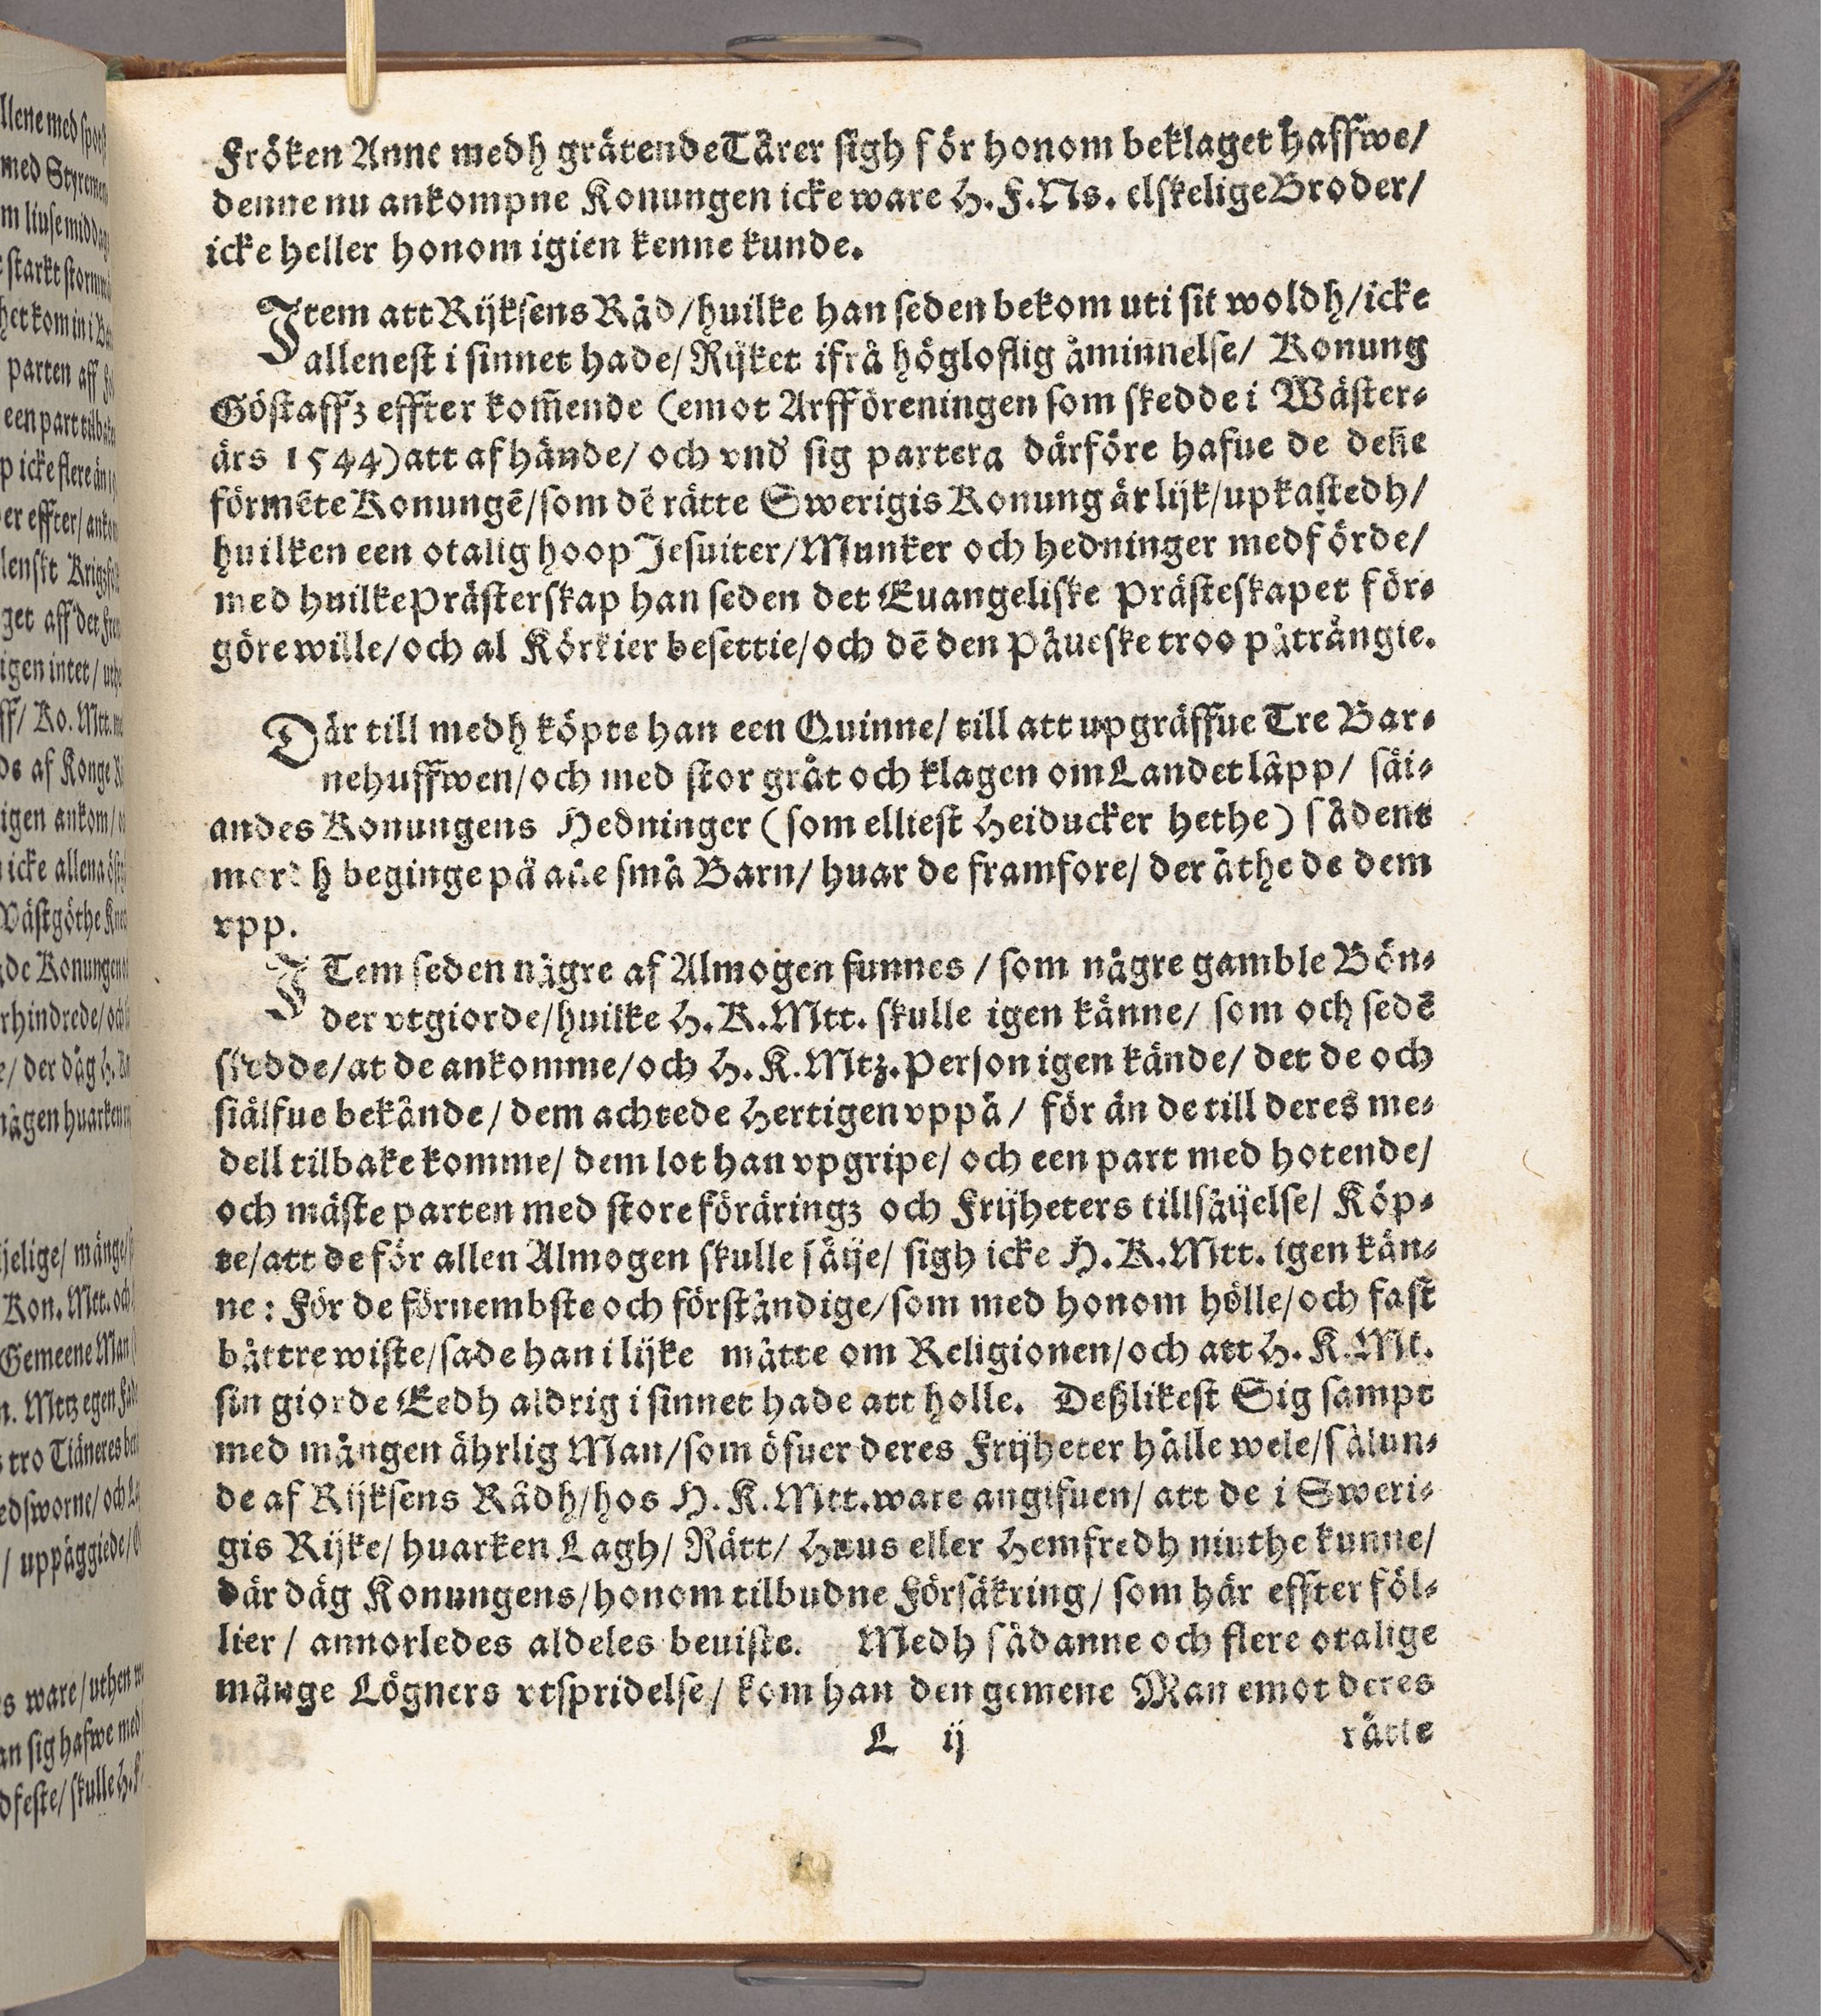 Fröken Anne medh grätende Tårer sigh för honom beklaget haffwe/
denne nu ankompne Konungen icke ware H. F. Ns. elskelige Broder/
icke heller honom igien kenne kunde.
Item att Rijksens Råd/huilke han seden bekom uti sit woldh/icke
allenest i sinnet hade/ Rijket ifrå högloflig åminnelse/ Konung
Göstaffz effter kom̃ende (emot Arfföreningen som skedde i Wäster⸗
års 1544) att afhände/ och vnd' sig partera därföre hafue de deñe
förmēte Konungē/som dē rätte Swerigis Konung är lijk/upkastedh/
huilken een otalig hoop Jesuiter/Munker och hedninger medförde/
med huilke Prästerskap han seden det Euangeliske Prästeskapet för⸗
göre wille/och al Körkier besettie/och dē den Påueske troo påtrångie.
Där till medh köpte han een Quinne/ till att upgräffue Tre Bar⸗
nehuffwen/och med stor gråt och klagen om Landet låpp/ säi⸗
andes Konungens Hedninger (som elliest Heiducker hethe) sådent
mordh beginge på alle små Barn/ huar de framfore/ der äthe de dem
vpp.
ITem seden någre af Almogen funnes / som någre gamble Bön⸗
der vtgiorde/huilke H. K. Mtt. skulle igen känne/ som och sedē
skedde/at de ankomme/och H. K. Mtz. Person igen kände/ det de och
siälfue bekände/ dem achtede Hertigen vppå/ för än de till deres me⸗
dell tilbake komme/ dem lot han vpgripe/ och een part med hotende/
och mäste parten med store föräringz och Frijheters tillsäijelse/ Köp⸗
te/att de för allen Almogen skulle säije/ sigh icke H. K. Mtt. igen kän⸗
ne: För de förnembste och förståndige/som med honom hölle/och fast
bättre wiste/sade han i lijke måtte om Religionen/och att H. K. Mt.
sin giorde Eedh aldrig i sinnet hade att holle. Deßlikest Sig sampt
med mången ährlig Man/som öfuer deres Frijheter hålle wele/sålun⸗
de af Rijksens Rådh/hos H. K. Mtt. ware angifuen/ att de i Sweri⸗
gis Rijke/ huarken Lagh/ Rätt/ Huus eller Hemfredh niuthe kunne/
där dåg Konungens/honom tilbudne Försäkring/ som här effter föl⸗
lier / annorledes aldeles beuiste. Medh sådanne och flere otalige
månge Lögners vtspridelse/ kom han den gemene Man emot deres
L ij rätte